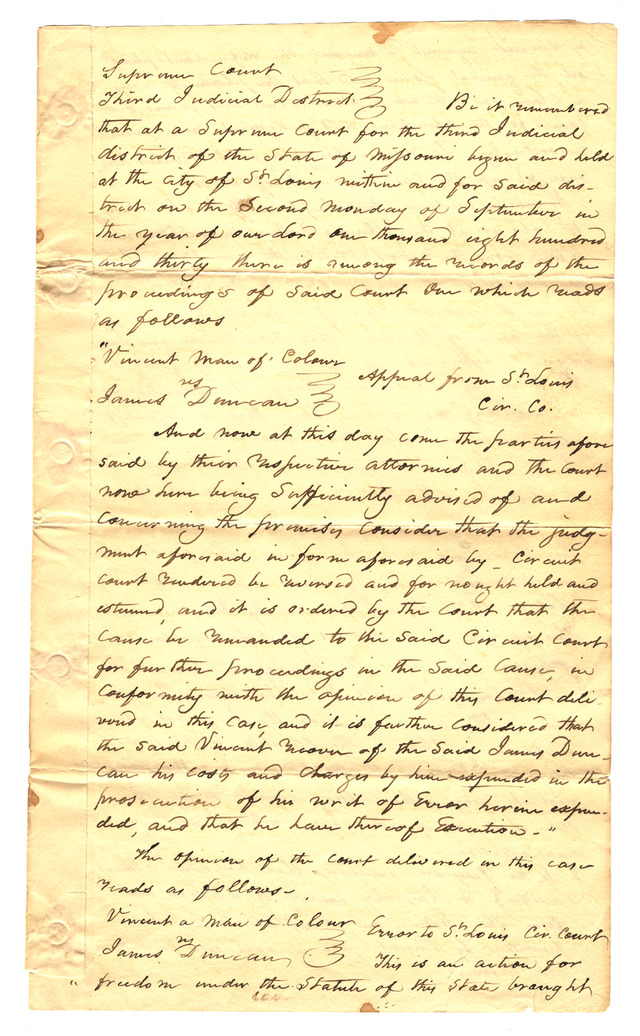 Supreme Court
Third Judicial District
Be it remembered
that at a Supreme Court for the third Judicial
district of the State of Missouri begun and held
at the city of St Louis within and for said dis-
trict on the Second Monday of September in
the year of our Lord One thousand eight hundred
and thirty there is among the records of the
proceedings of said Court One which reads
as follows
"Vincent Man of Colour
vs
James Duncan
Appeal from St Louis
Cir. Co.
And now at this day come the parties afore
said by their respective attornies and the Court
now here being Sufficiently advised of and
Concerning the premises Consider that the judg-
ment aforesaid in form aforesaid by Circuit
Court rendered be reversed and for nought held and
esteemed, and it is ordered by the Court that the
Cause be remanded to the said Circuit Court
for further proceedings in the Said Cause, in
Conformity with the opinion of this Court deli-
vered in this case, and it is further considered that
the said Vincent recover of the Said James Dun-
can his costs and charges by him expended in the
prosecution of his writ of Error herein expen-
ded, and that he have thereof Execution."
The opinion of the court delivered in this case
reads as follows
Vincent a Man of Colour
vs
James Duncan
Error to St Louis Cir. Court
This is an action for
"freedom under the Statute of this State brought